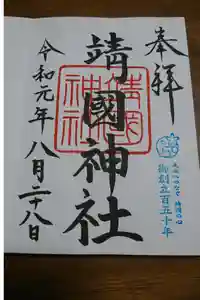 奉拝
御創立百五十年
靖國神社
令和元年八月二十八日